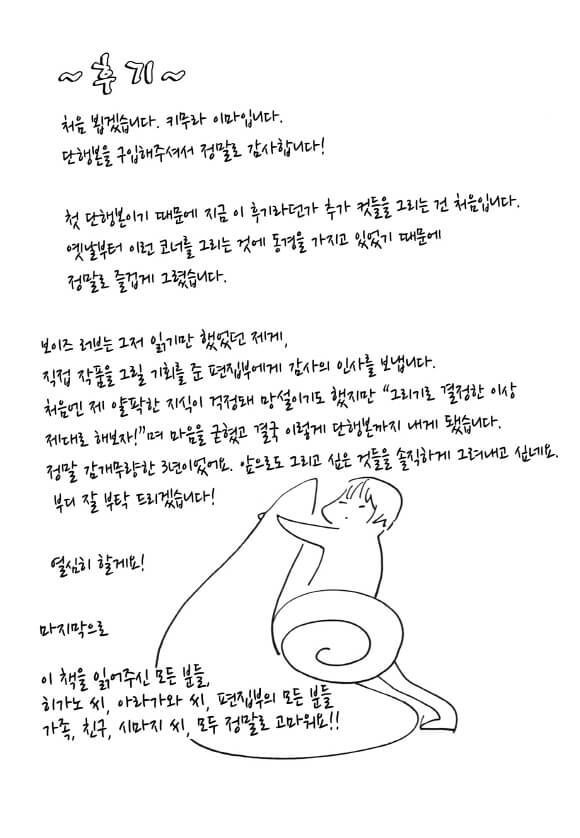 ~후기~
처음 뵙겠습니다. 키무라 이마입니다.
단행본을 구입해주셔서 정말로 감사합니다!
첫 단행본이기 때문에 지금 이 후기라던가 추가 컷들을 그리는 건 처음입니다.
옛날부터 이런 코너를 그리는 것에 동경을 가지고 있었기 때문에
정말로 즐겁게 그렸습니다.
보이즈 러브는 그저 읽기만 했었던 제게,
직접 작품을 그릴 기회를 준 편집부에게 감사의 인사를 보냅니다.
처음엔 제 얄팍한 지식이 걱정돼 망설이기도 했지만 "그리기로 결정한 이상
제대로 해보자!"며 마음을 굳혔고 결국 이렇게 단행본까지 내게 됐습니다.
정말 감개무량한 3년이었어요. 앞으로도 그리고 싶은 것들을 솔직하게 그려내고 싶네요.
부디 잘 부탁 드리겠습니다!
열심히 할게요!
마지막으로
이 책을 읽어주신 모든 분들,
히가노 씨, 아라가와 씨, 편집부의 모든 분들
가족, 친구, 시마지 씨, 모두 정말로 고마워요!!